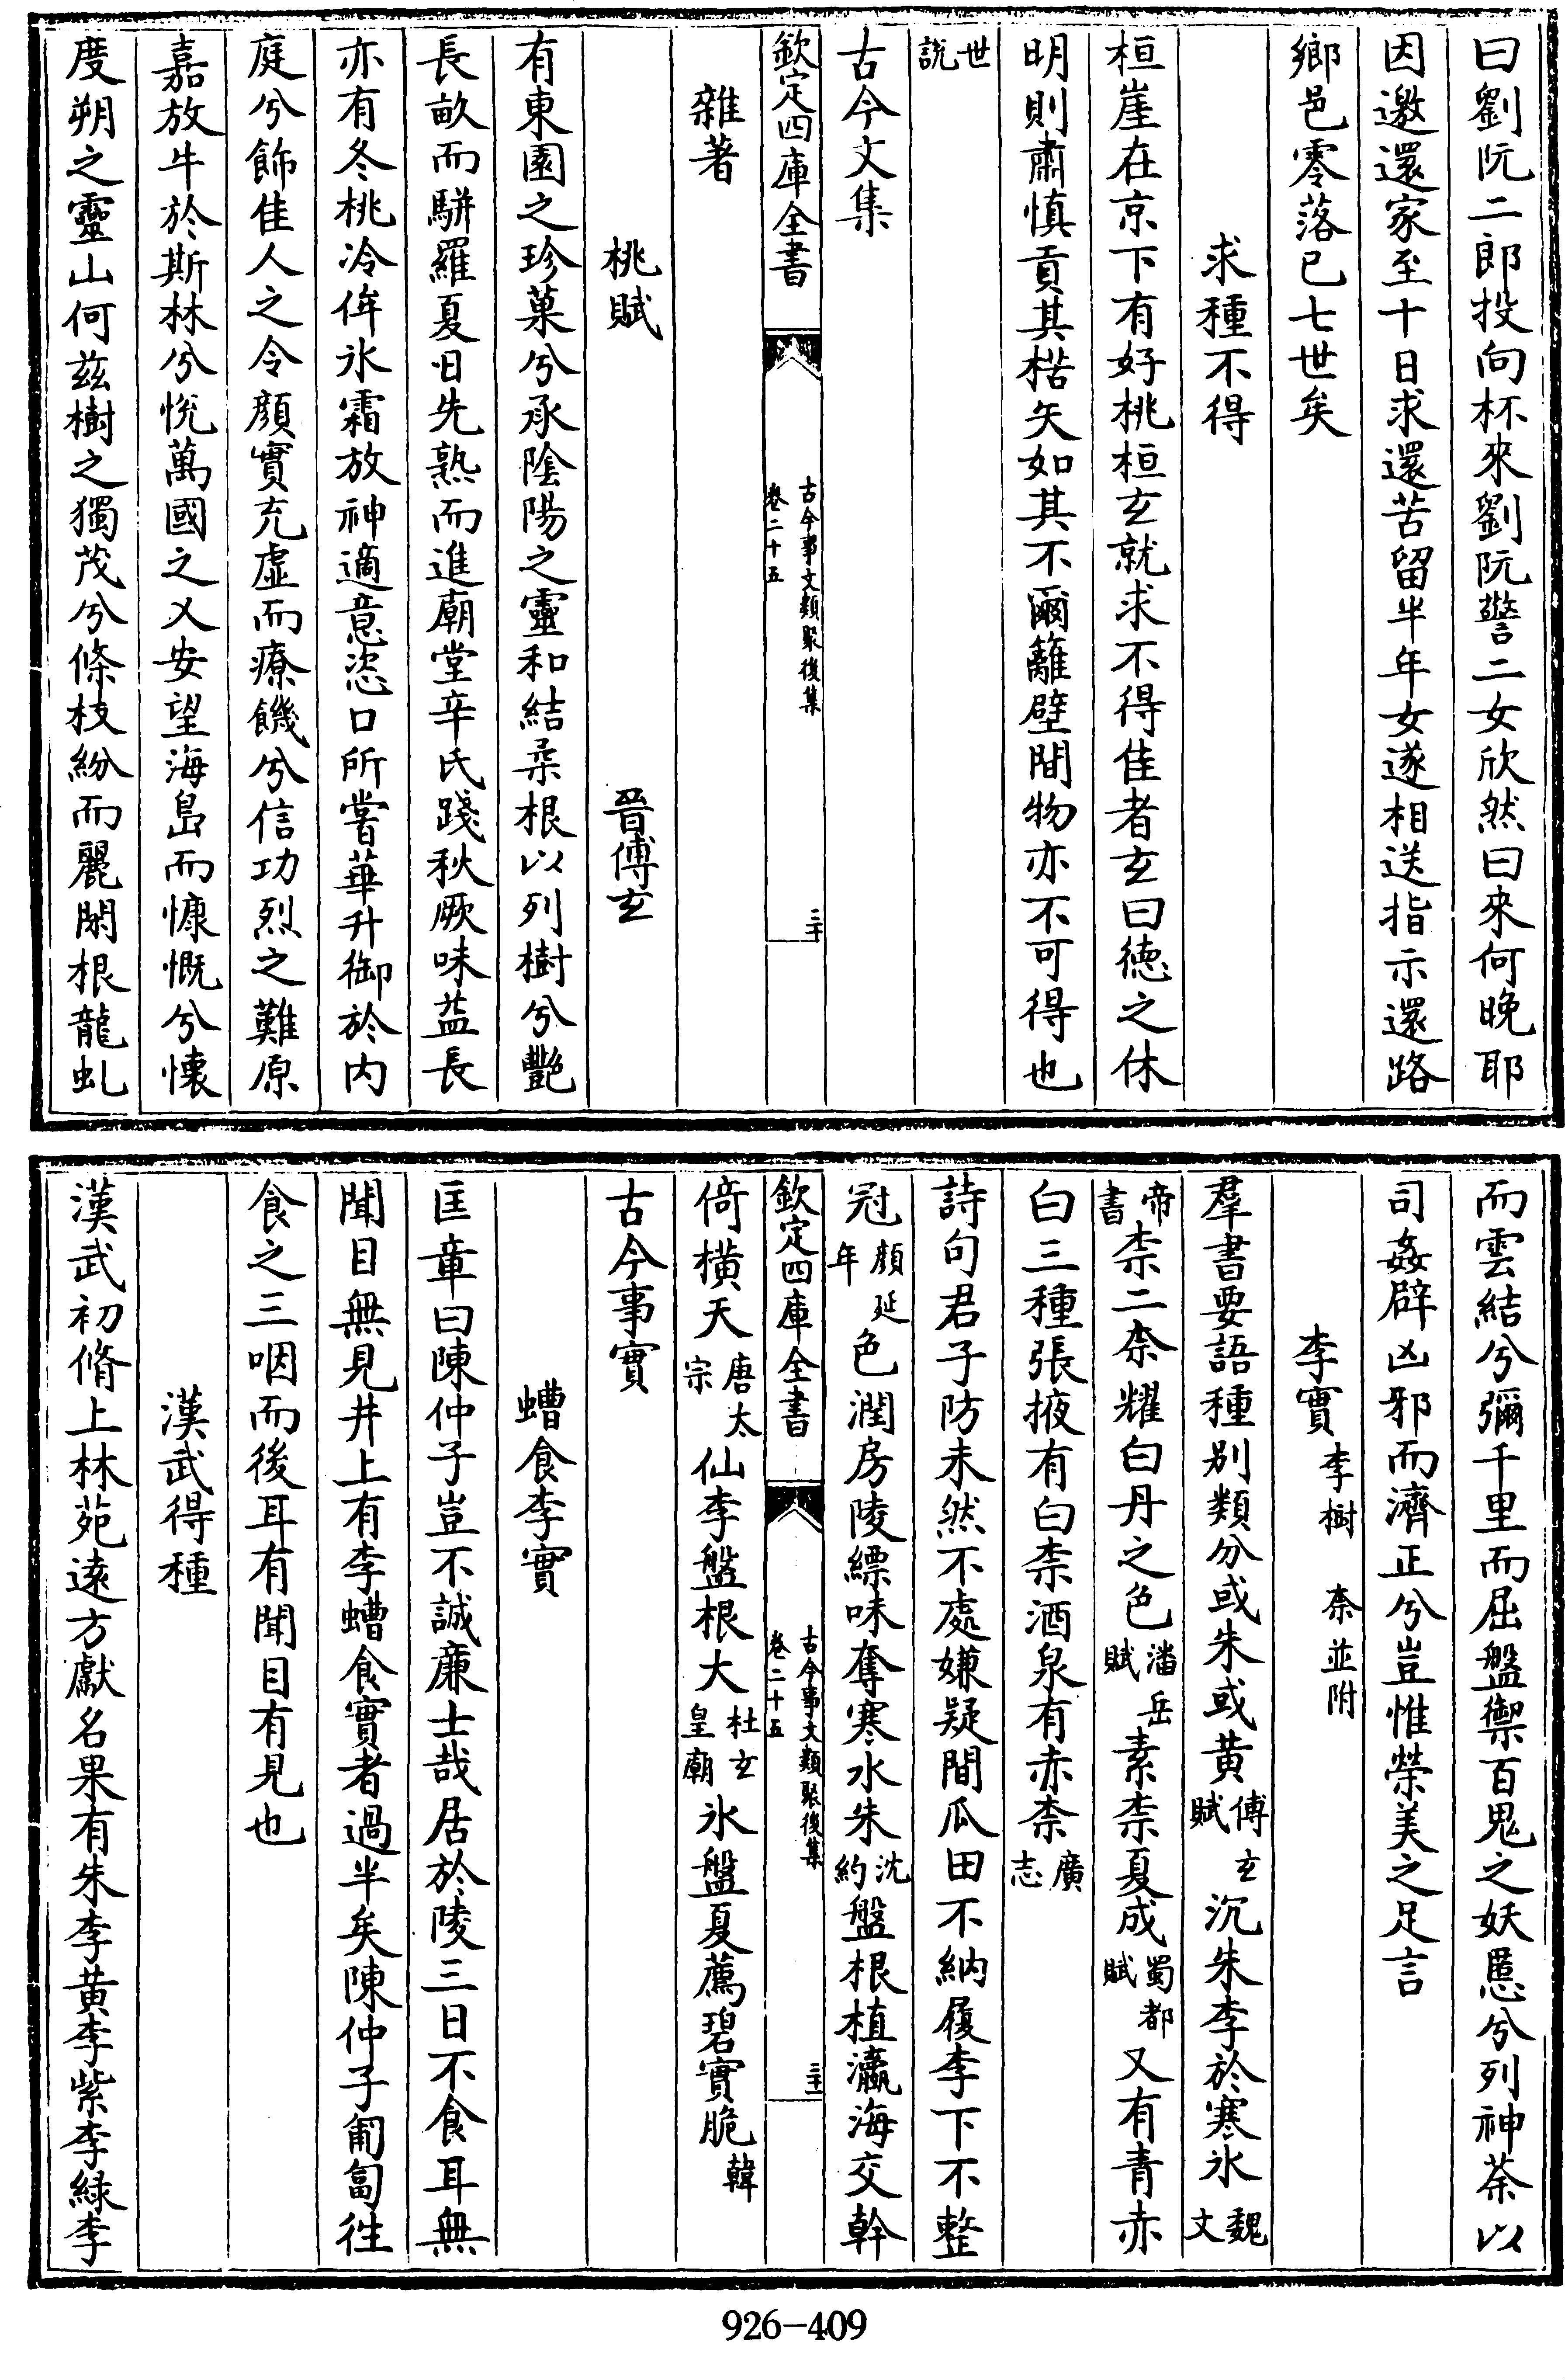 曰劉阮二郎投向杯來劉阮警二女欣然曰來何晚耶
因邀還家至十日求還苦留半年女遂相送指示還路
鄉邑零落已七世矣
求種不得
桓崖在京下有好桃桓玄就求不得佳者玄曰德之休
明則肅慎貢其楛矢如其不爾籬壁間物亦不可得也
世說
古今文集
欽定四庫全書
古今事文類聚後集
卷二十五
三十
雜著
桃賦 晉傅玄
有東園之珍菓兮承陰陽之靈和結柔根以列樹兮艷
長畝而駢羅夏日先熟而進廟堂辛氏踐秋厥味益長
亦有冬桃冷侔氷霜放神適意恣口所嘗華升御於内
庭兮飾佳人之令顔實充虛而療饑兮信功烈之難原
嘉放牛於斯林兮悅萬國之乂安望海島而慷慨兮懷
度朔之靈山何兹樹之獨茂兮條枝紛而麗閑根龍虬
而雲結兮彌千里而屈盤禦百鬼之妖慝兮列神荼以
司姦辟凶邪而濟正兮豈惟榮美之足言
李實 李樹 柰並附
羣書要語種别類分或朱或黄傅玄賦沉朱李於寒氷魏文
帝書柰二柰耀白丹之色潘岳賦素柰夏成蜀都賦又有青赤
白三種張掖有白柰酒泉有赤柰廣志
詩句君子防未然不處嫌疑間瓜田不納履李下不整
冠顔延年色潤房陵縹味奪寒水朱沈約盤根植瀛海交幹
欽定四庫全書
古今事文類聚後集
卷二十五
三十一
倚橫天唐太宗仙李盤根大杜玄皇廟氷盤夏薦碧實脆韓
古今事實
螬食李實
匡章曰陳仲子豈不誠亷士哉居於陵三日不食耳無
聞目無見井上有李螬食實者過半矣陳仲子匍匐徃
食之三咽而後耳有聞目有見也
漢武得種
漢武初脩上林苑逺方獻名果有朱李黄李紫李緑李
926-409